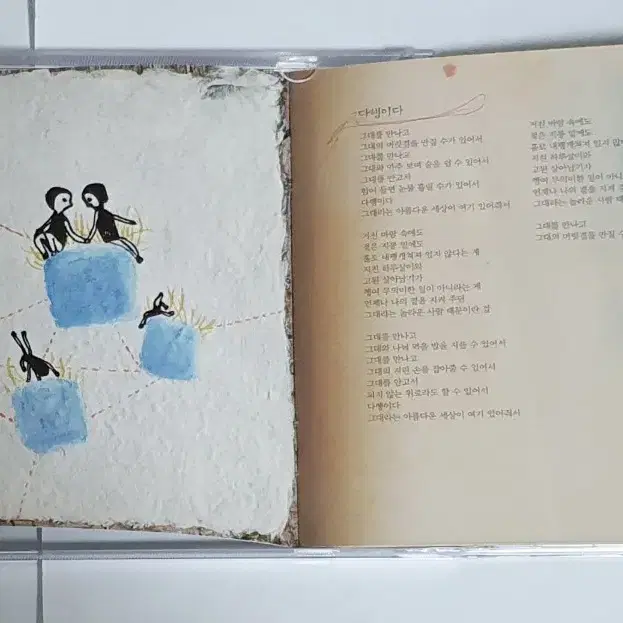 다행이다
그대를 만나고
그대의 머릿결을 만질 수가 있어서
그대를 만나고
그대와 마주 보며 숨을 쉴 수 있어서
그대를 안고서
힘이 들면 눈물 흘릴 수가 있어서
다행이다
그대라는 아름다운 세상이 여기 있어줘서
거친 바람 속에도
젖은 지붕 밑에도
홀로 내팽개쳐져 있지 않다는 게
지친 하루살이와
고된 살아남기가
행여 무의미한 일이 아니라는 게
언제나 나의 곁을 지켜 주던
그대라는 놀라운 사람 때문이란 걸
그대를 만나고
그대와 나눠 먹을 밥을 지을 수 있어서
그대를 만나고
그대의 저린 손을 잡아줄 수 있어서
그대를 안고서
되지 않는 위로라도 할 수 있어서
다행이다
그대라는 아름다운 세상이 여기 있어줘서
거친 바람 속에도
젖은 지붕 밑에도
홀로 내팽개쳐져 있지
지친 하루살이와
고된 살아남기가
행여 무의미한 일이 아니
언제나 나의 곁을 지켜 주
그대라는 놀라운 사람 때
그대를 만나고
그대의 머릿결을 만질 수